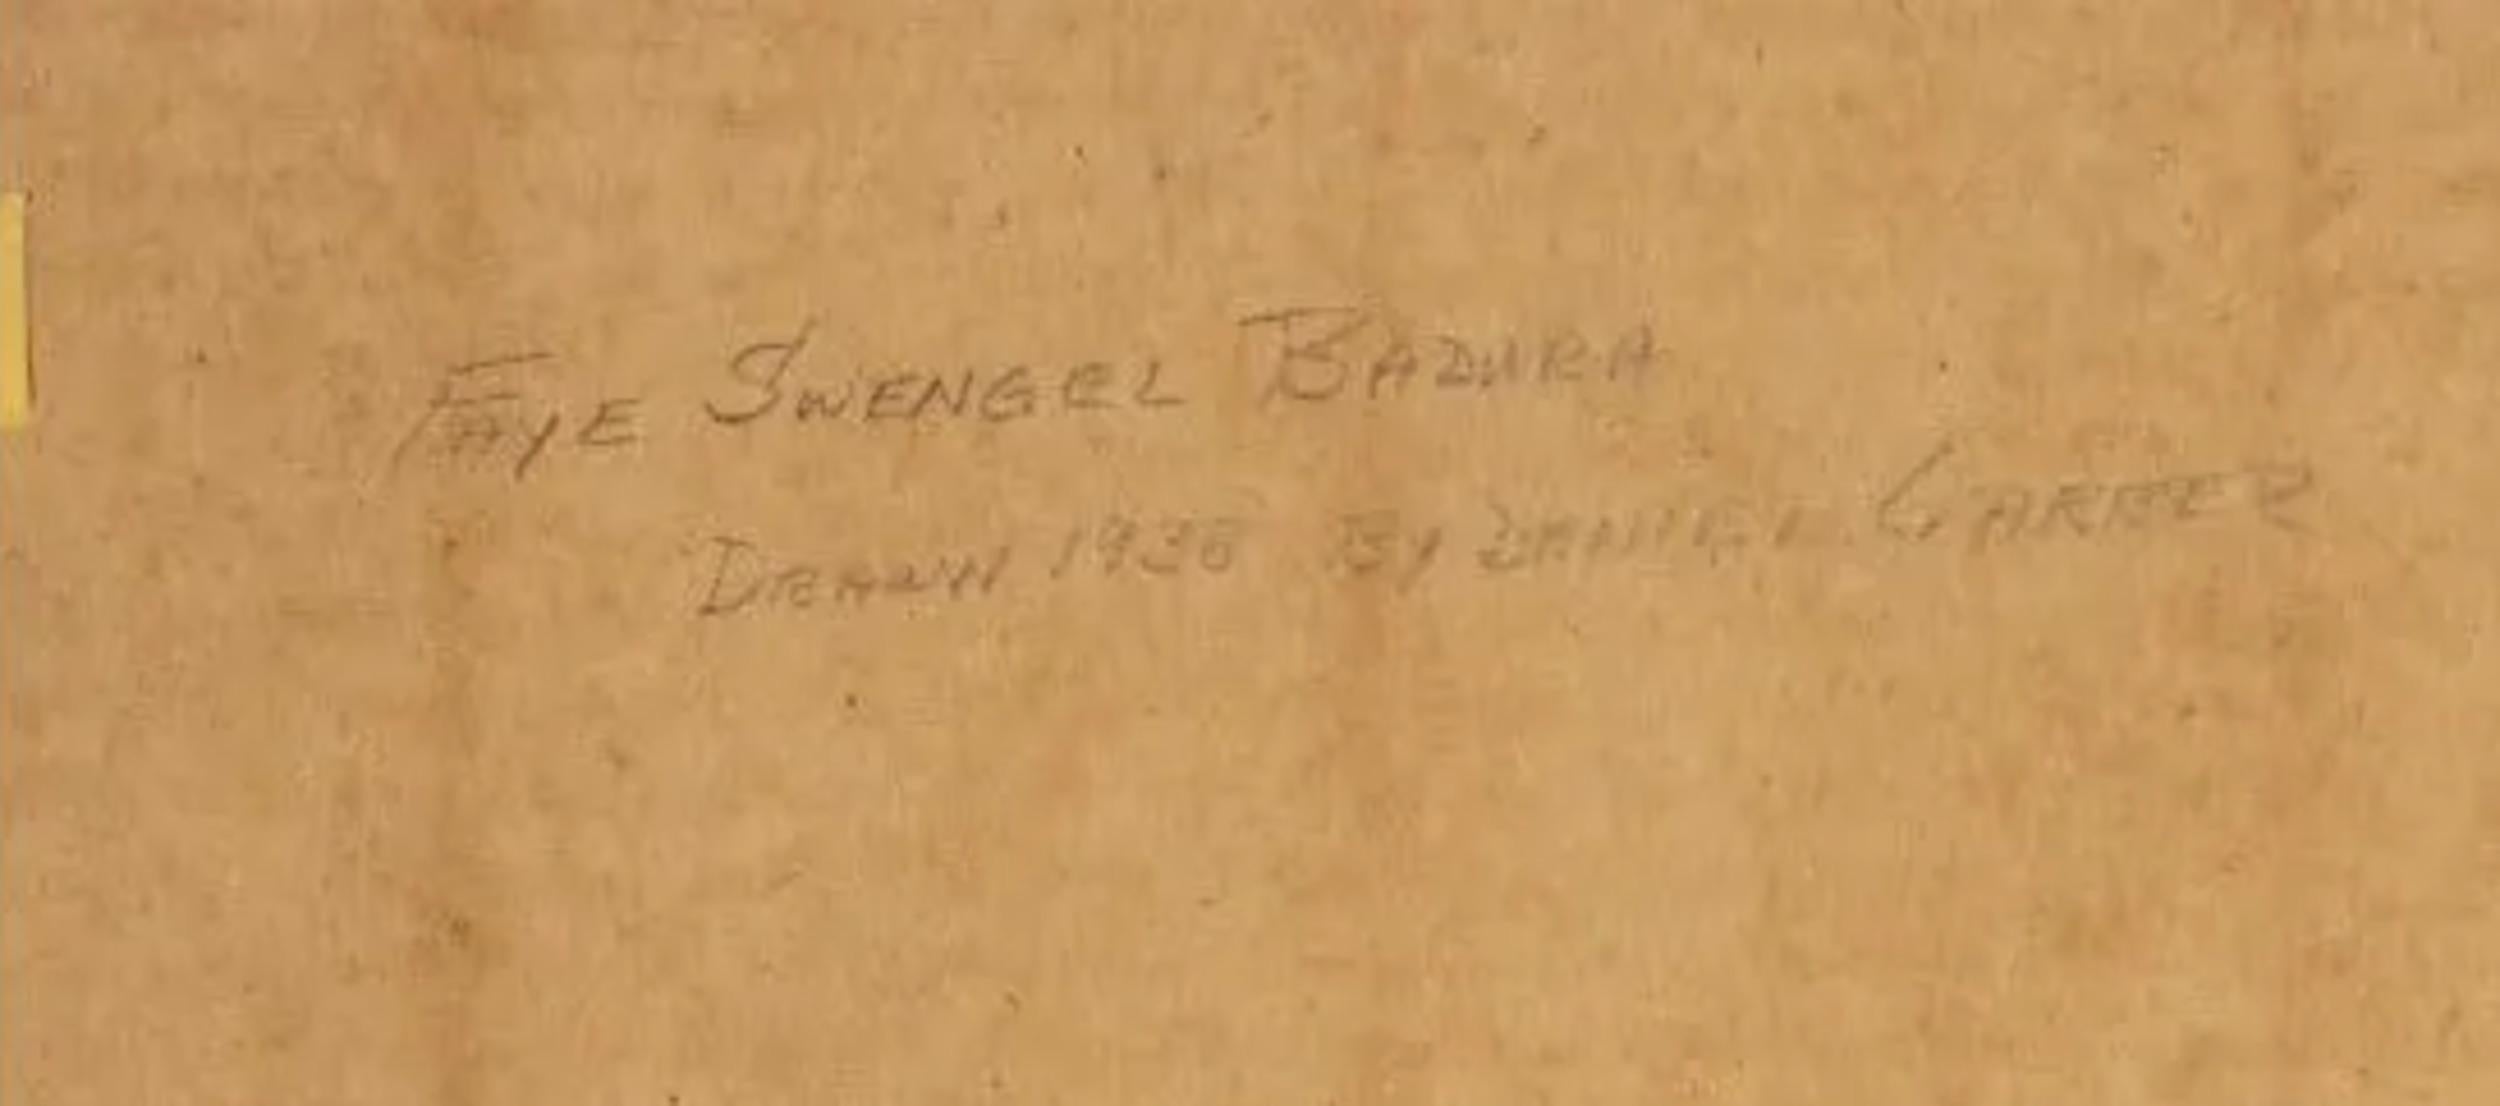 FAYE SWENGEL BADURA
DRAWN 1936 BY DANIEL GARBER